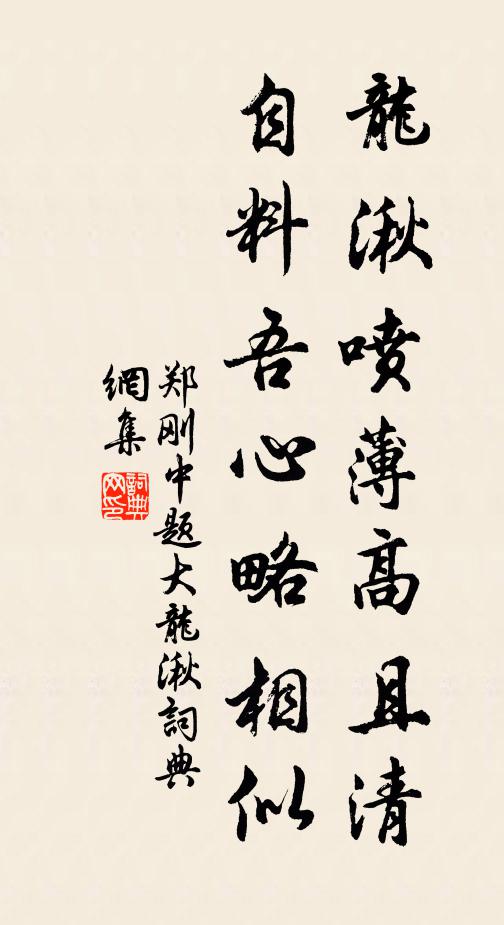 龍湫噴薄高且清
自料吾心略相似
郑刚中题大龍湫詞典
網集
詞典
网印